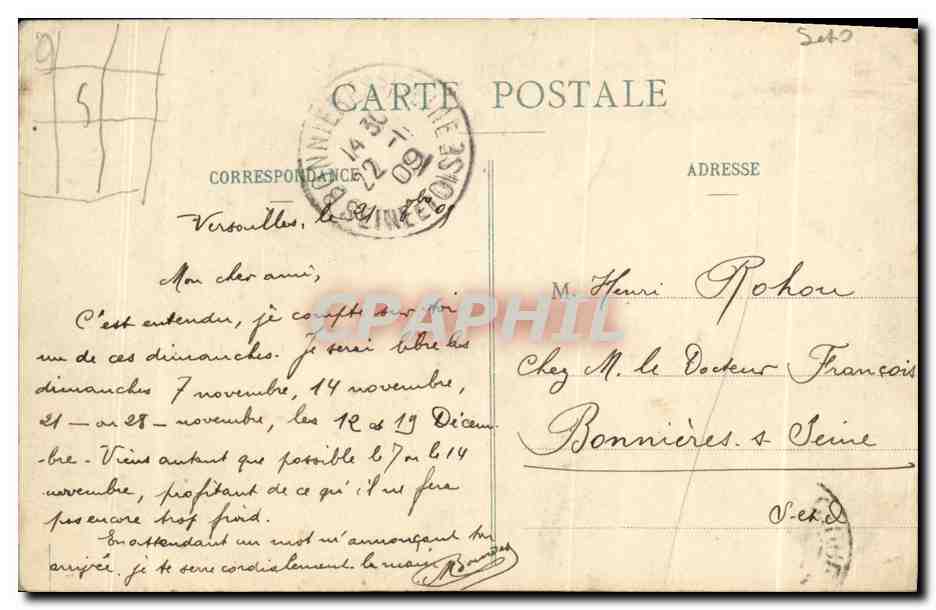 S et O
5
CARTE POSTALE
14 30
22 09
BONNIÈRES SEINE ET OISE
CORRESPONDANCE
ADRESSE
Versailles, le 21 8bre 09
Mon cher ami,
C'est entendu, je compte sur toi
un de ces dimanches. Je serai libre les
dimanches 7 novembre, 14 novembre,
21 - ou 28 - novembre, les 12 et 19 Décem-
-bre - Viens autant que possible le 7 ou le 14
novembre, profitant de ce qu'il ne fera
pas encore trop froid.
En attendant un mot m'annonçant ton
arrivée, je te serre cordialement la main
M. Henri Rohou
Chez M. le Docteur François
Bonnières s Seine
S-et-O
CPAPHIL